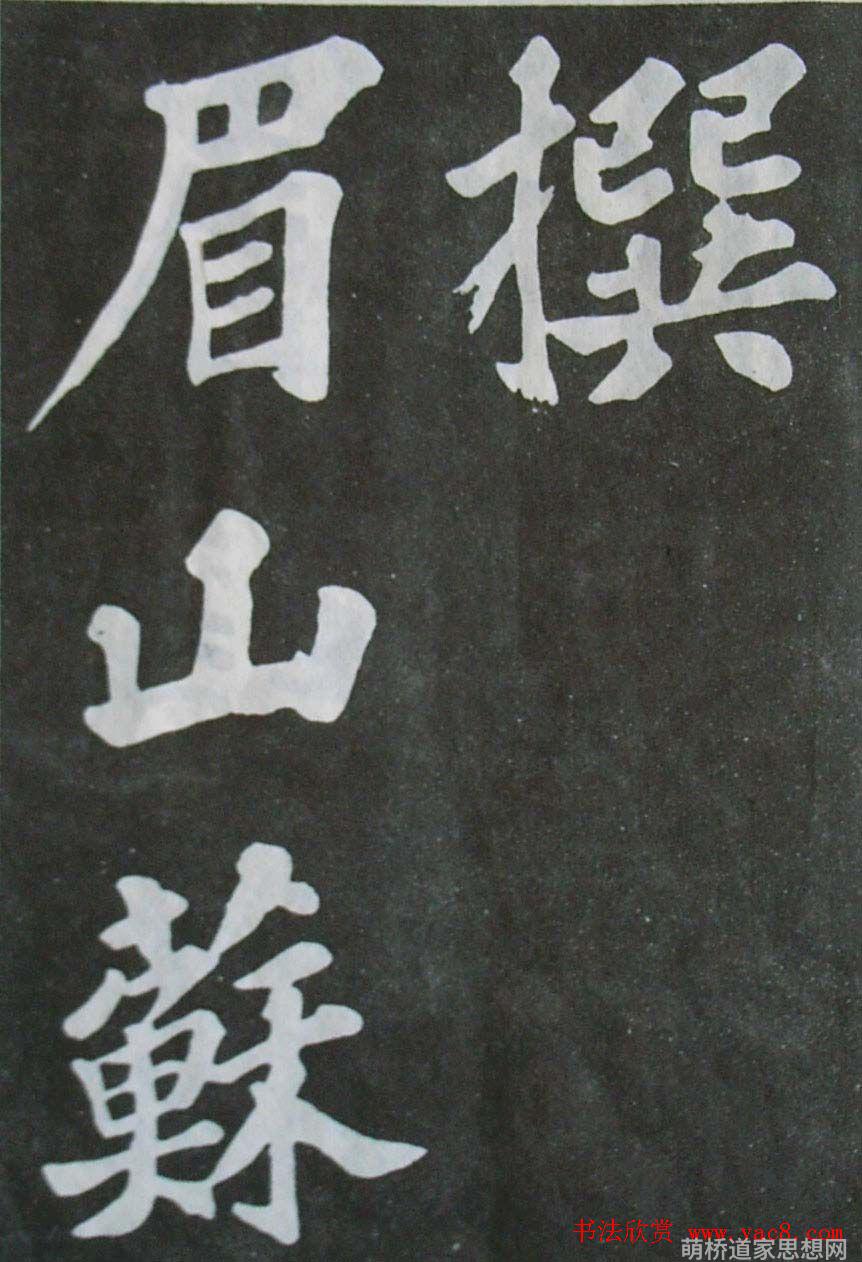 撰
眉山蘇
书法欣赏 www.yac8.com
萌桥道家思想网